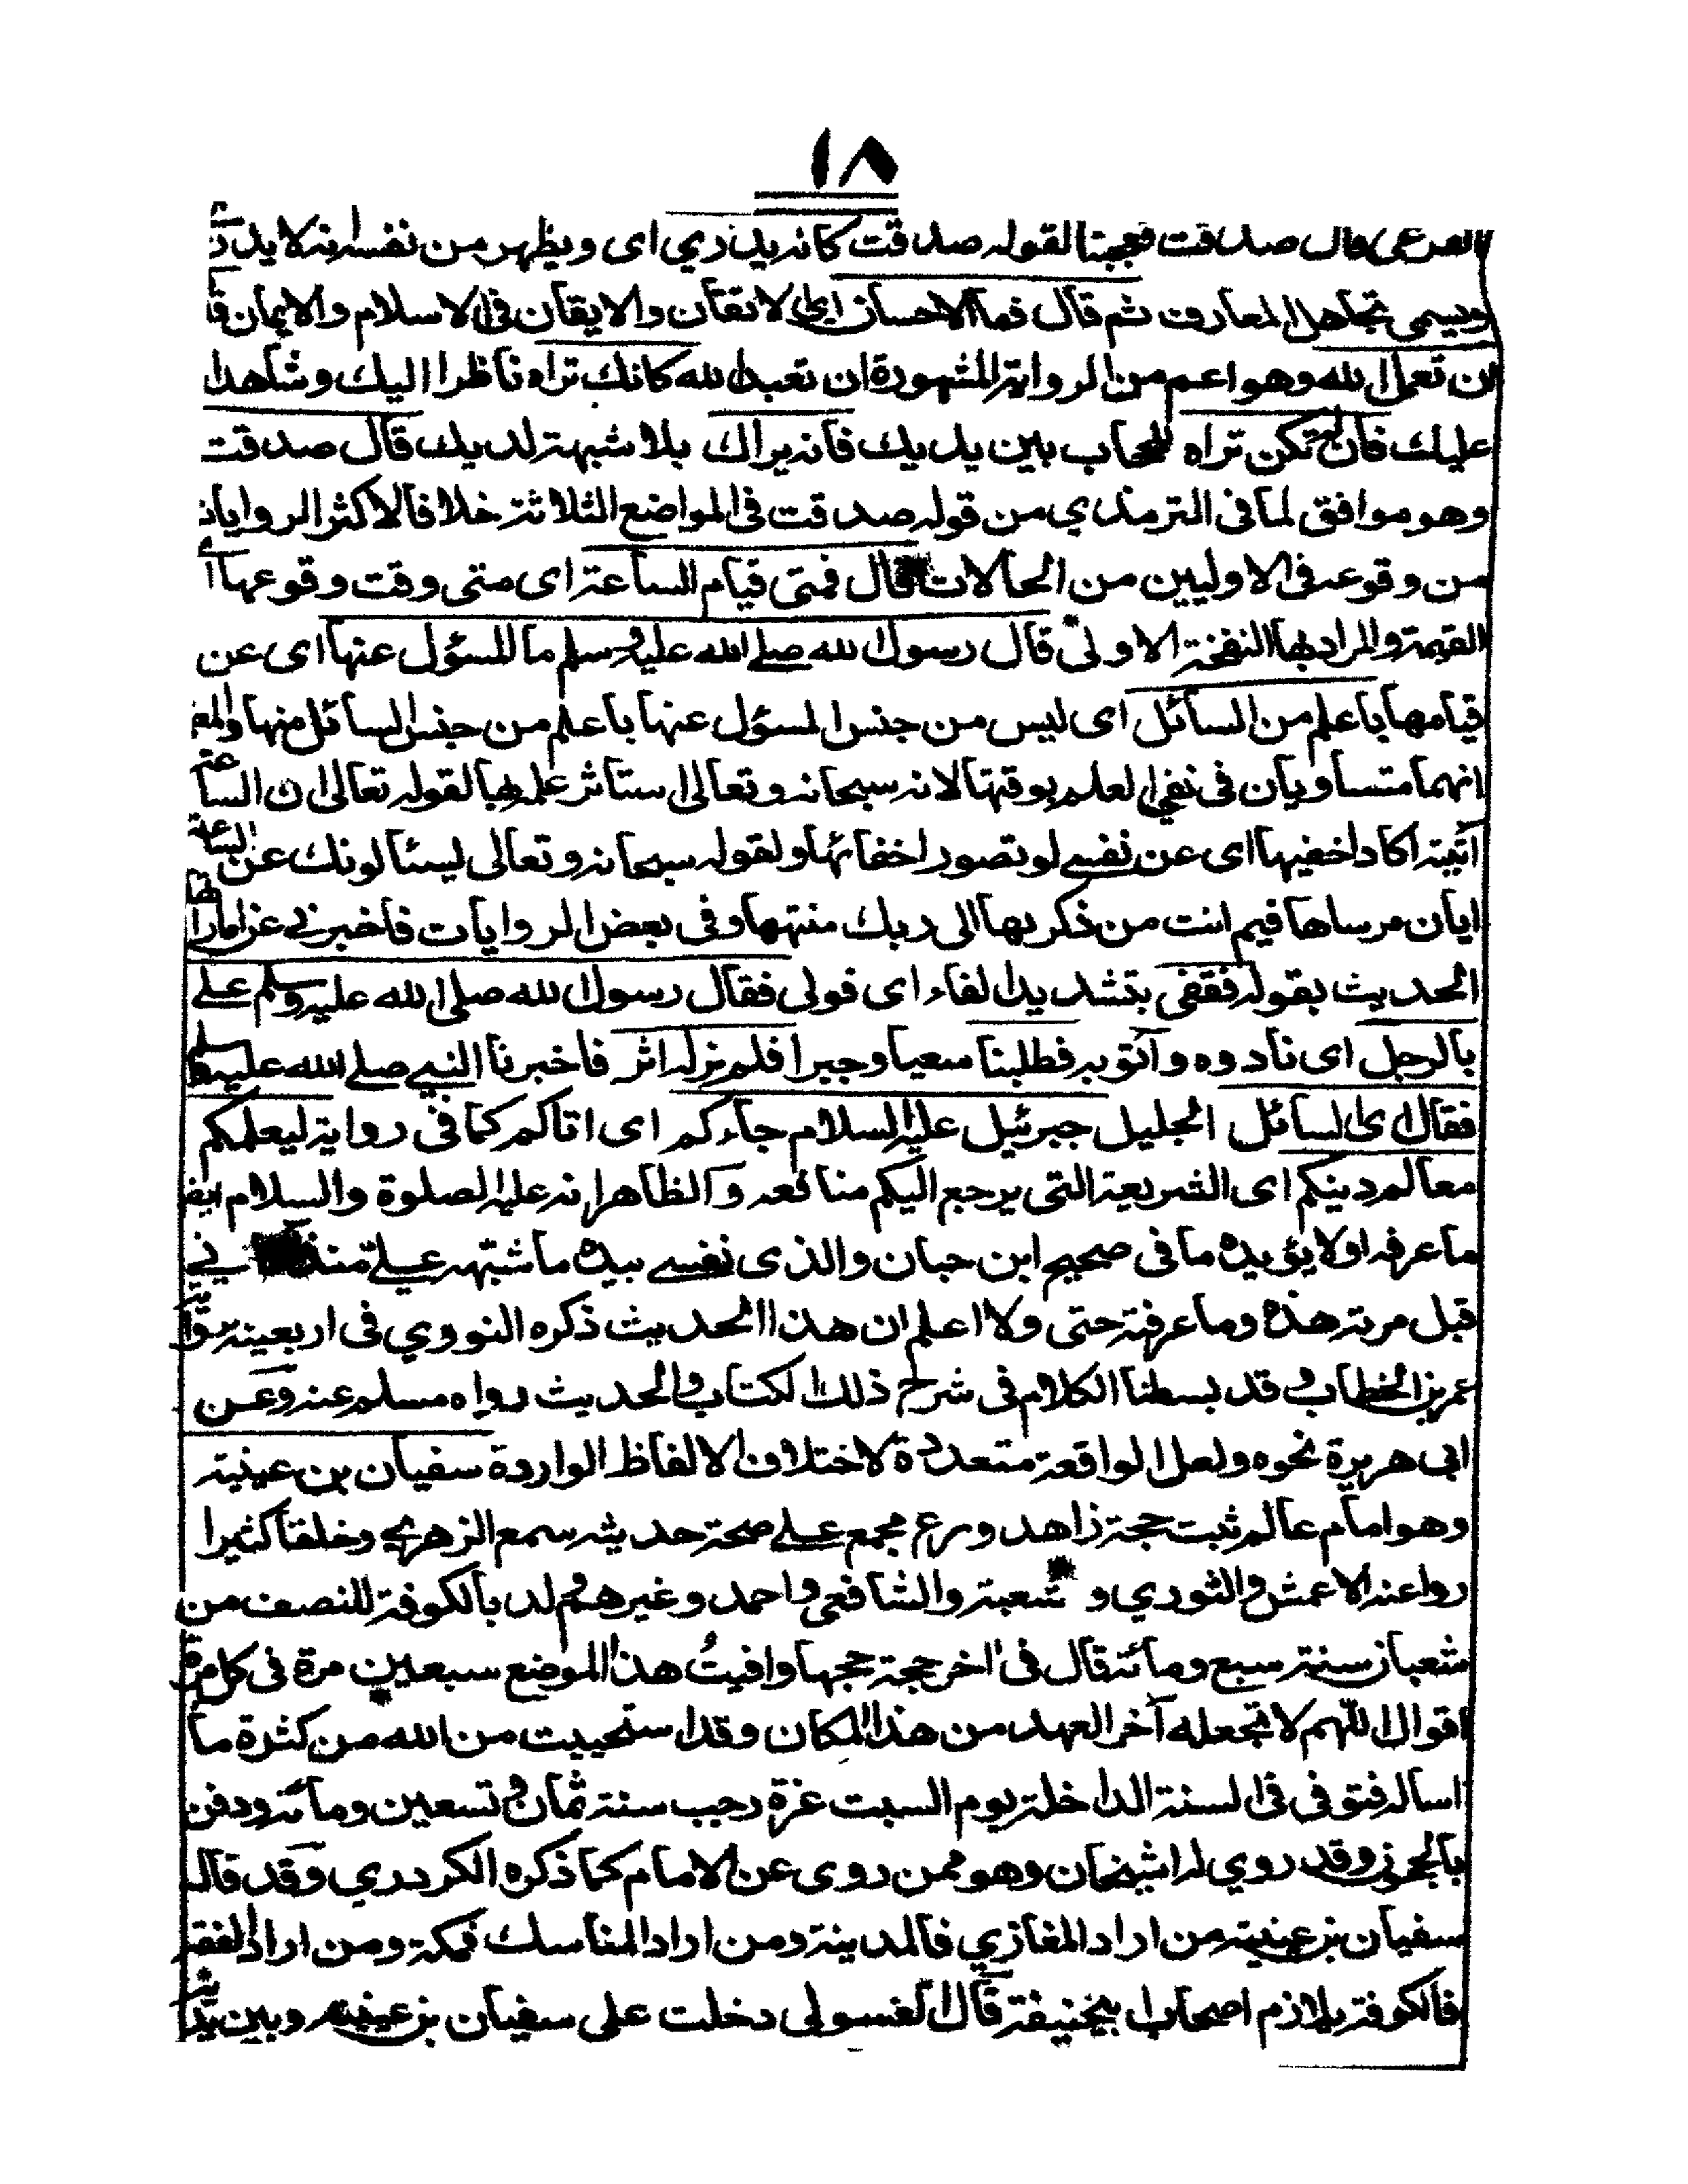 ١٨
الفرعى قال صدقت فعجبنا لقوله صدقت كانه يدري اى ويظهر من نفسه انه لا يدرى
ويسمى تجاهل المعارف ثم قال فما الاحسان اى الاتقان والايقان فى الاسلام والايمان قال
ان تعمل لله وهو اعم من الرواية المشهورة ان تعبد الله كانك تراه ناظرا اليك وشاهدا
عليك فان لم تكن تراه للحجاب بين يديك فانه يراك بلا شبهة لديك قال صدقت
وهو موافق لما فى الترمذي من قوله صدقت فى المواضع الثلاثة خلافا لاكثر الروايات
من وقوعه فى الاوليين من الحالات قال فمتى قيام الساعة اى متى وقت وقوعها اى
القيمة والمراد بها النفخة الاولى قال رسول الله صلى الله عليه وسلم ما المسؤل عنها اى عن
قيامها باعلم من السائل اى ليس من جنس المسؤل عنها باعلم من جنس السائل منها والمعنى
انهما متساويان فى نفى العلم بوقتها لانه سبحانه وتعالى استاثر علمها لقوله تعالى ان الساعة
آتية اكاد اخفيها اى عن نفسى لو تصور اخفائها ولقوله سبحانه وتعالى يسئالونك عن الساعة
ايان مرساها فيم انت من ذكريها الى ربك منتهها وفى بعض الروايات فاخبرنى عن اماراتها
الحديث بقوله فقفى بتشديد الفاء اى فولى فقال رسول الله صلى الله عليه وسلم على
بالرجل اى نادوه وآتو به فطلبنا سعيا وجبرا فلم نر له اثر فاخبرنا النبى صلى الله عليه وسلم
فقال اى السائل الجليل جبرئيل عليه السلام جاءكم اى اتاكم كما فى رواية ليعلمكم
معالم دينكم اى الشريعة التى يرجع اليكم منافعه والظاهر انه عليه الصلوة والسلام ايضا
ما عرفه اولا يؤيده ما فى صحيح ابن حبان والذى نفسى بيده ما شبّه علىّ منذ اتانى
قبل مرته هذه وما عرفته حتى ولا اعلم ان هذا الحديث ذكره النووي فى اربعينه برواية
عمر بن الخطاب وقد بسطنا الكلام فى شرح ذلك الكتاب والحديث رواه مسلم عنه وعن
ابى هريرة نحوه ولعل الواقعة متعددة لاختلاف الالفاظ الواردة سفيان بن عيينة
وهو امام عالم ثبت حجة زاهد ورع مجمع على صحة حديثه سمع الزهرى وخلقا كثيرا
روا عنه الاعمش والثوري و شعبة والشافعى واحمد وغيرهم ولد بالكوفة للنصف من
شعبان سنة سبع ومائة قال فى اخر حجة حجها وافيتُ هذا الموضع سبعين مرة فى كل مرة
اقول اللّهم لا تجعله آخر العهد من هذا المكان وقد استحييت من الله من كثرة ما
اساله فتوفى فى السنة الداخلة يوم السبت غرة رجب سنة ثمان وتسعين ومائة ودفن
بالحجون وقد روي له الشيخان وهو ممن روى عن الامام كما ذكره الكردري وقد قال
سفيان بن عيينة من اراد المغازي فالمدينة ومن اراد المناسك فمكة ومن اراد الفقه
فالكوفة يلازم اصحاب ابيحنيفة قال الغسولى دخلت على سفيان بن عيينة وبين يديه